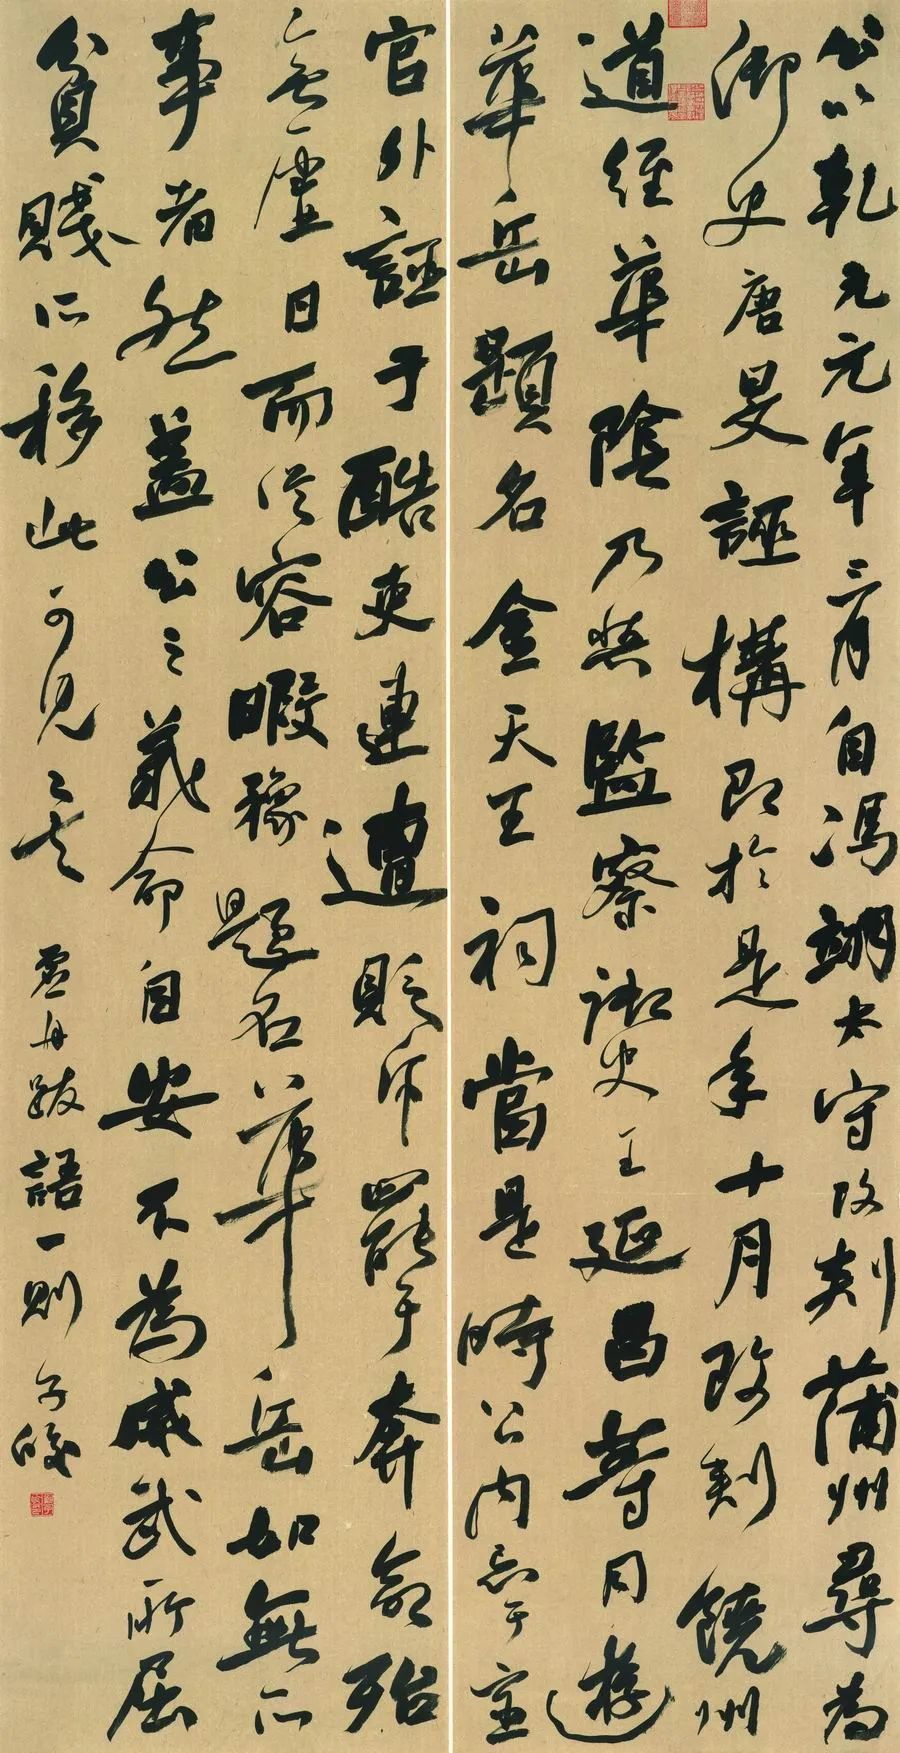 公以乾元元年三月自馮翊太守改刺蒲州尋為
御史唐旻誣構即於是年十月改刺饒州
道經華陰乃與監察御史王延昌等同遊
華岳題名金天王祠當是時公內忌于室
官外誣于酷吏連遭貶斥罷于奔命殆
無虛日而從容暇豫題名華岳如無所
事者然蓋公之義命自安不為威武所屈
貧賤所移此可見矣
虛舟跋語一則